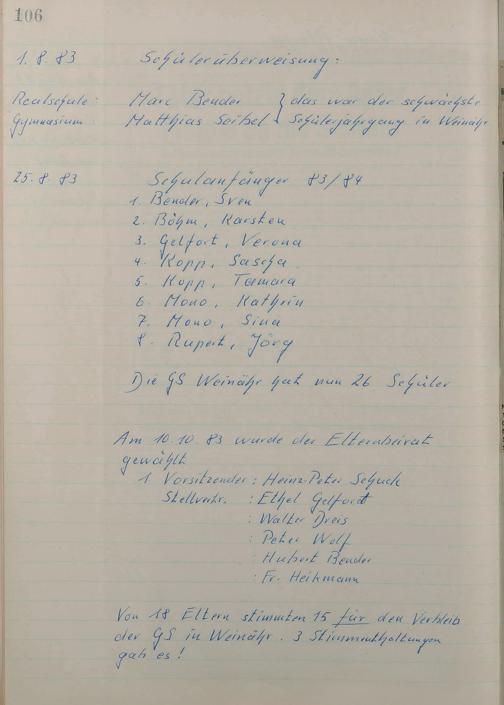 106
1. 8. 83 Schülerüberweisung:
Realschule: Marc Bender } das war der schwächste
Gymnasium: Matthias Seibel Schülerjahrgang in Weinähr
25. 8. 83 Schulanfänger 83/84
1. Bender, Sven
2. Böhm, Karsten
3. Gelfort, Verona
4. Kopp, Sascha
5. Kopp, Tamara
6. Mono, Kathrin
7. Mono, Sina
8. Rupert, Jörg
Die GS Weinähr hat nun 26 Schüler
Am 10.10. 83 wurde der Elternbeirat
gewählt
1 Vorsitzender: Heinz-Peter Schuck
Stellvertr. : Ethel Gelfort
: Walter Dreis
: Peter Wolf
: Hubert Bender
: Fr. Heikmann
Von 18 Eltern stimmten 15 für den Verbleib
der GS in Weinähr. 3 Stimmenthaltungen
gab es!